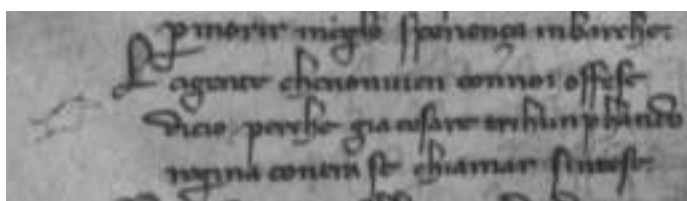 p morir miglo spienença inbarche:
Lagente chenonuien connoi offese
dicio perche gia cesare trihunphando
regina contra se chiamar sintese.